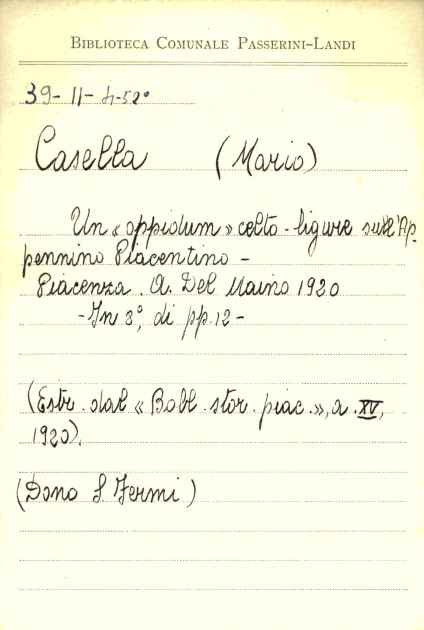 BIBLIOTECA COMUNALE PASSERINI-LANDI
39-11-h-52°
Casella (Mario)
Un « oppidum » celto-ligure sull'Ap-
pennino Piacentino -
Piacenza. A. Del Maino 1920
- In 8°, di pp. 12 -
(Estr. dal « Boll. stor. piac. », a. XV,
1920).
(Dono S. Fermi)